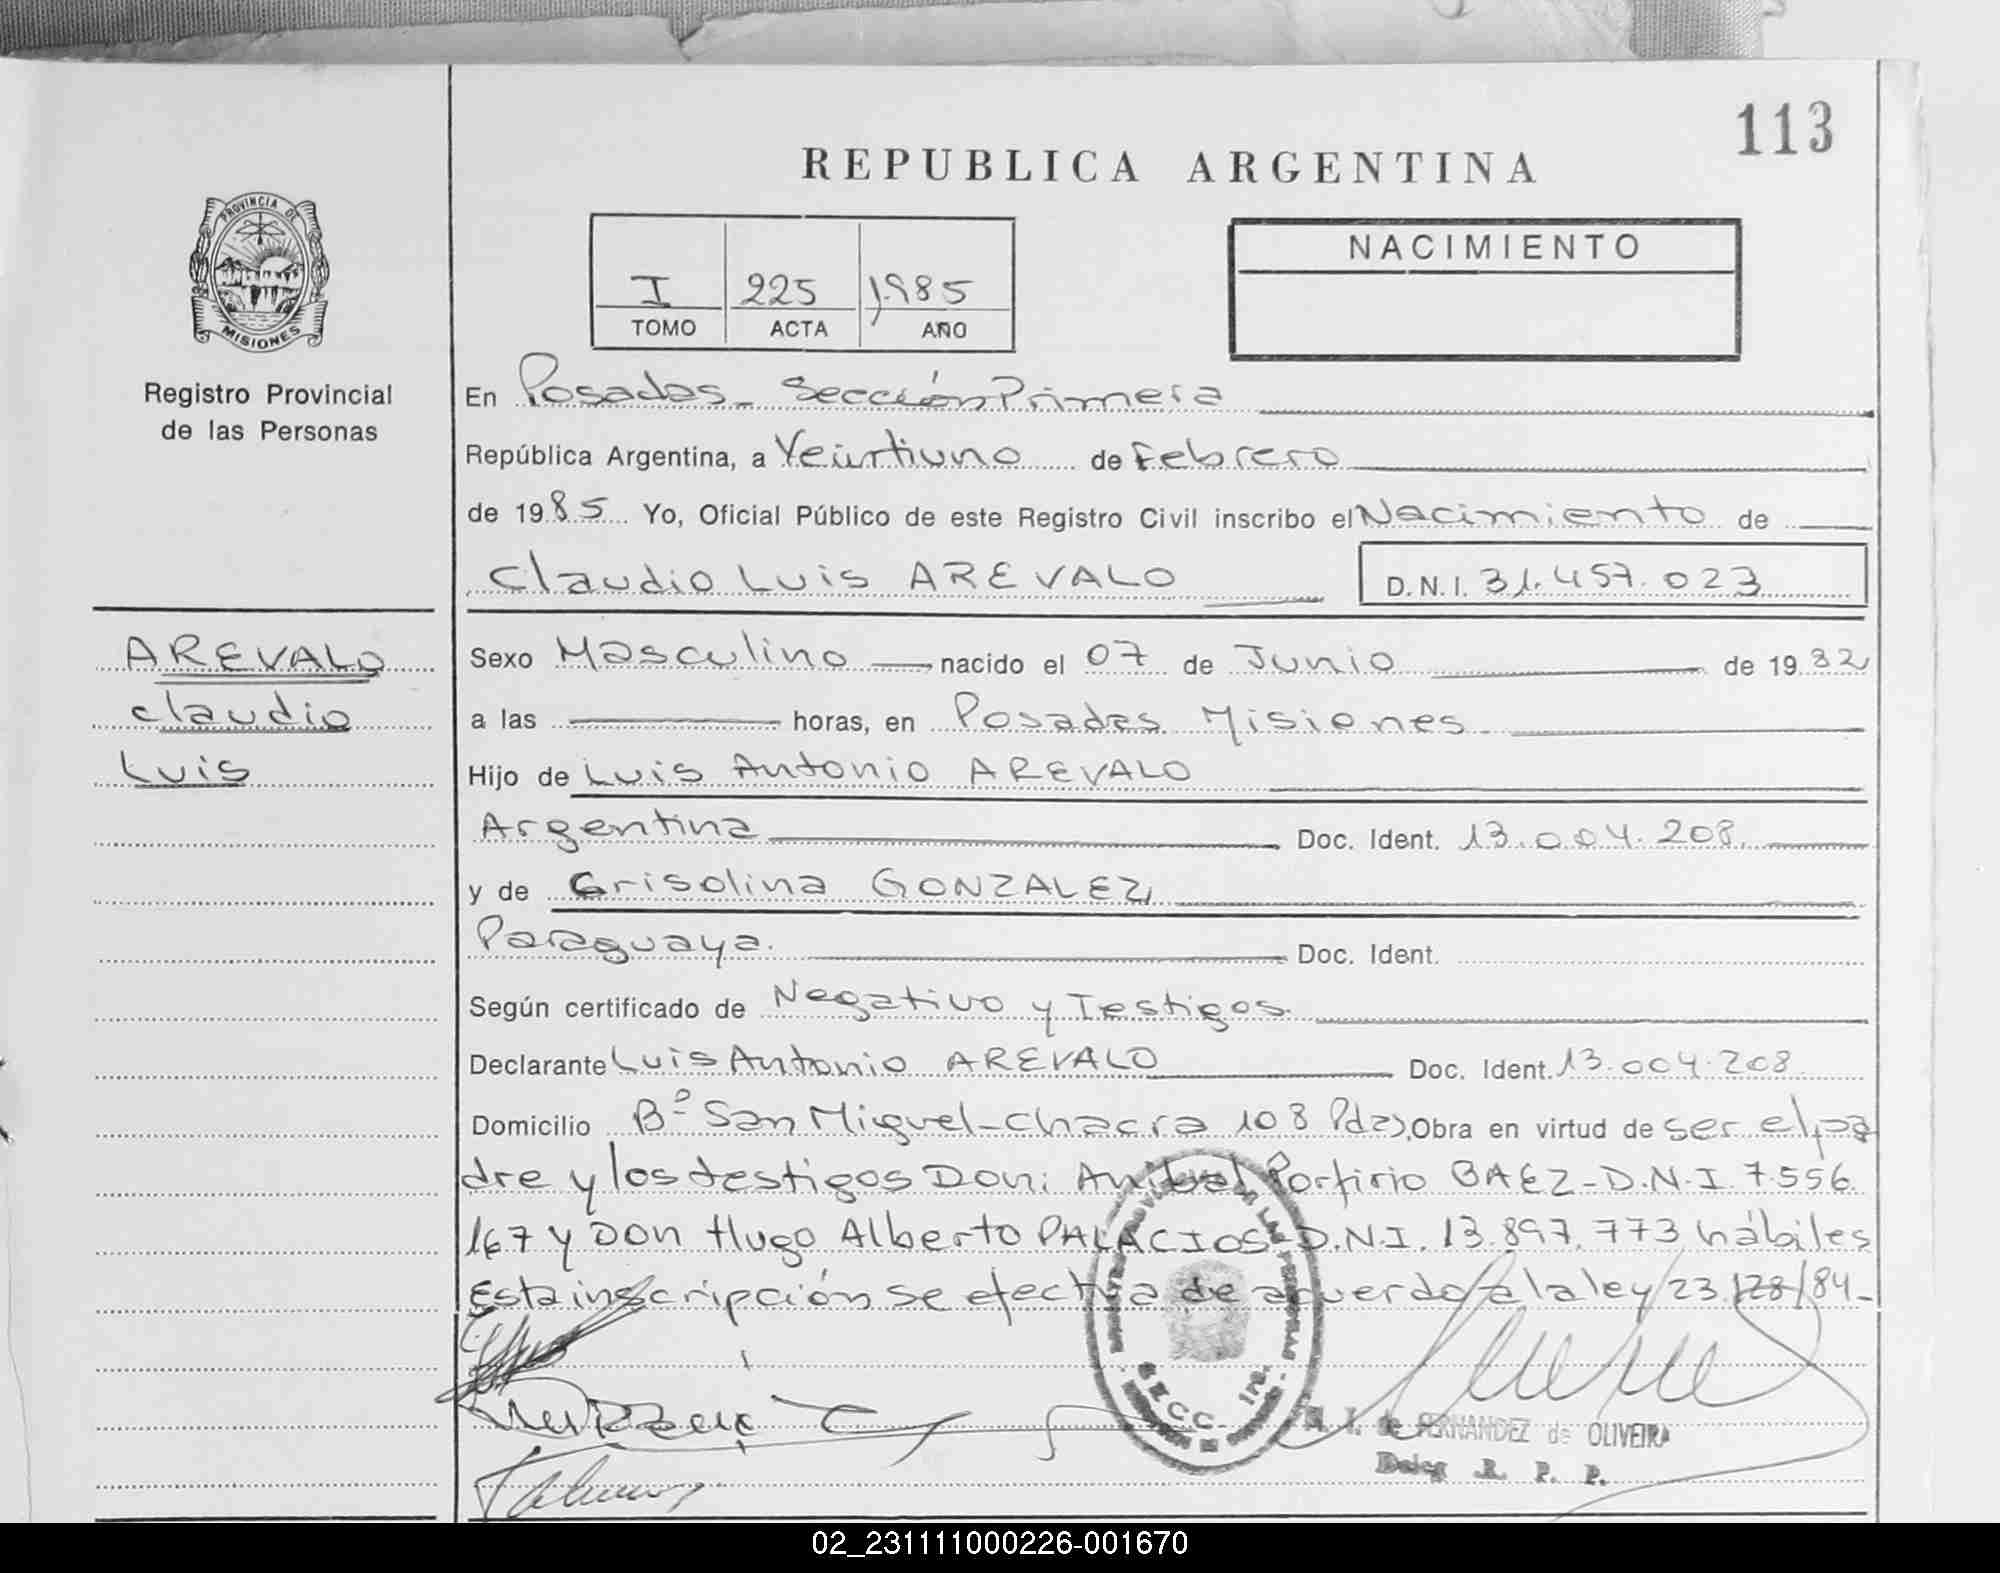 113
REPUBLICA ARGENTINA
PROVINCIA DE
MISIONES
Registro Provincial
de las Personas
I 225 1985
TOMO ACTA AÑO
NACIMIENTO
En Posadas - Sección Primera
República Argentina, a Veintiuno de Febrero
de 1985 Yo, Oficial Público de este Registro Civil inscribo el Nacimiento de
Claudio Luis AREVALO D.N.I. 31.457.023
AREVALO
Claudio
Luis
Sexo Masculino nacido el 07 de Junio de 1982
a las horas, en Posadas Misiones
Hijo de Luis Antonio AREVALO
Argentina Doc. Ident. 13.004.208
y de Grisolina GONZALEZ
Paraguaya. Doc. Ident.
Según certificado de Negativo y Testigos
Declarante Luis Antonio AREVALO Doc. Ident. 13.004.208
Domicilio Bº San Miguel - Chacra 108 Pdas, Obra en virtud de ser el pa
dre y los testigos Don: Anibal Porfirio BAEZ - D.N.I. 7.556.
167 y Don Hugo Alberto PALACIOS - D.N.I. 13.897.773 hábiles
Esta inscripción se efectua de acuerdo a la ley 23.128/84-
SECC. 1ra.
de FERNANDEZ de OLIVEIRA
Deleg R. P. P.
02_231111000226-001670